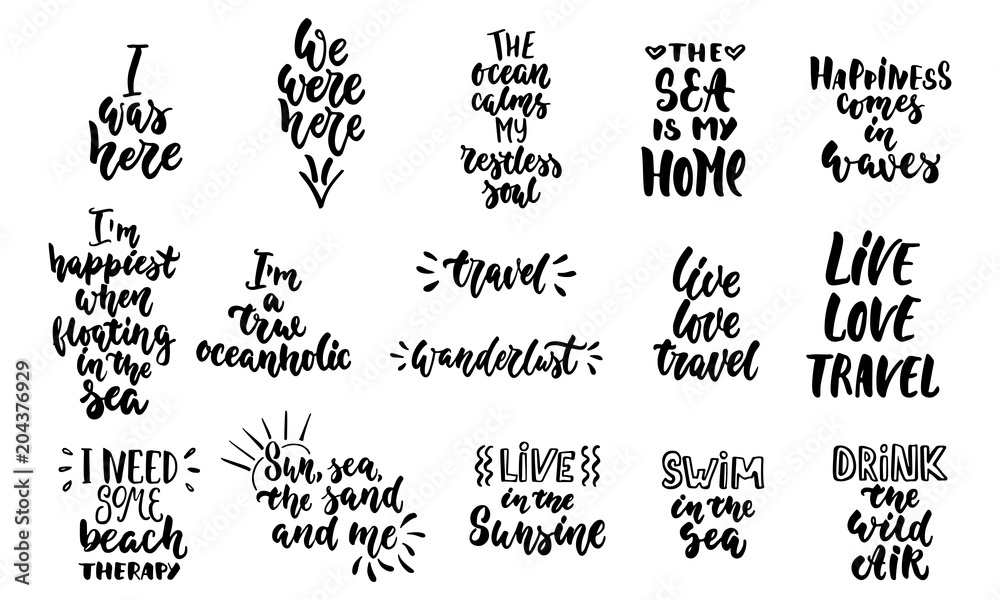 I
was
here
We
were
here
THE
ocean
calms
MY
restless
soul
THE
SEA
IS MY
HOME
HAPPINESS
comes
in
waves
I'm
happiest
when
floating
in the
sea
I'm
a
true
oceanholic
travel
wanderlust
live
love
travel
LIVE
LOVE
TRAVEL
I NEED
SOME
beach
THERAPY
Sun, sea,
the sand
and me
LIVE
in the
Sunsine
SWIM
in the
sea
DRINK
the
wild
AIR
Adobe Stock | #204376929